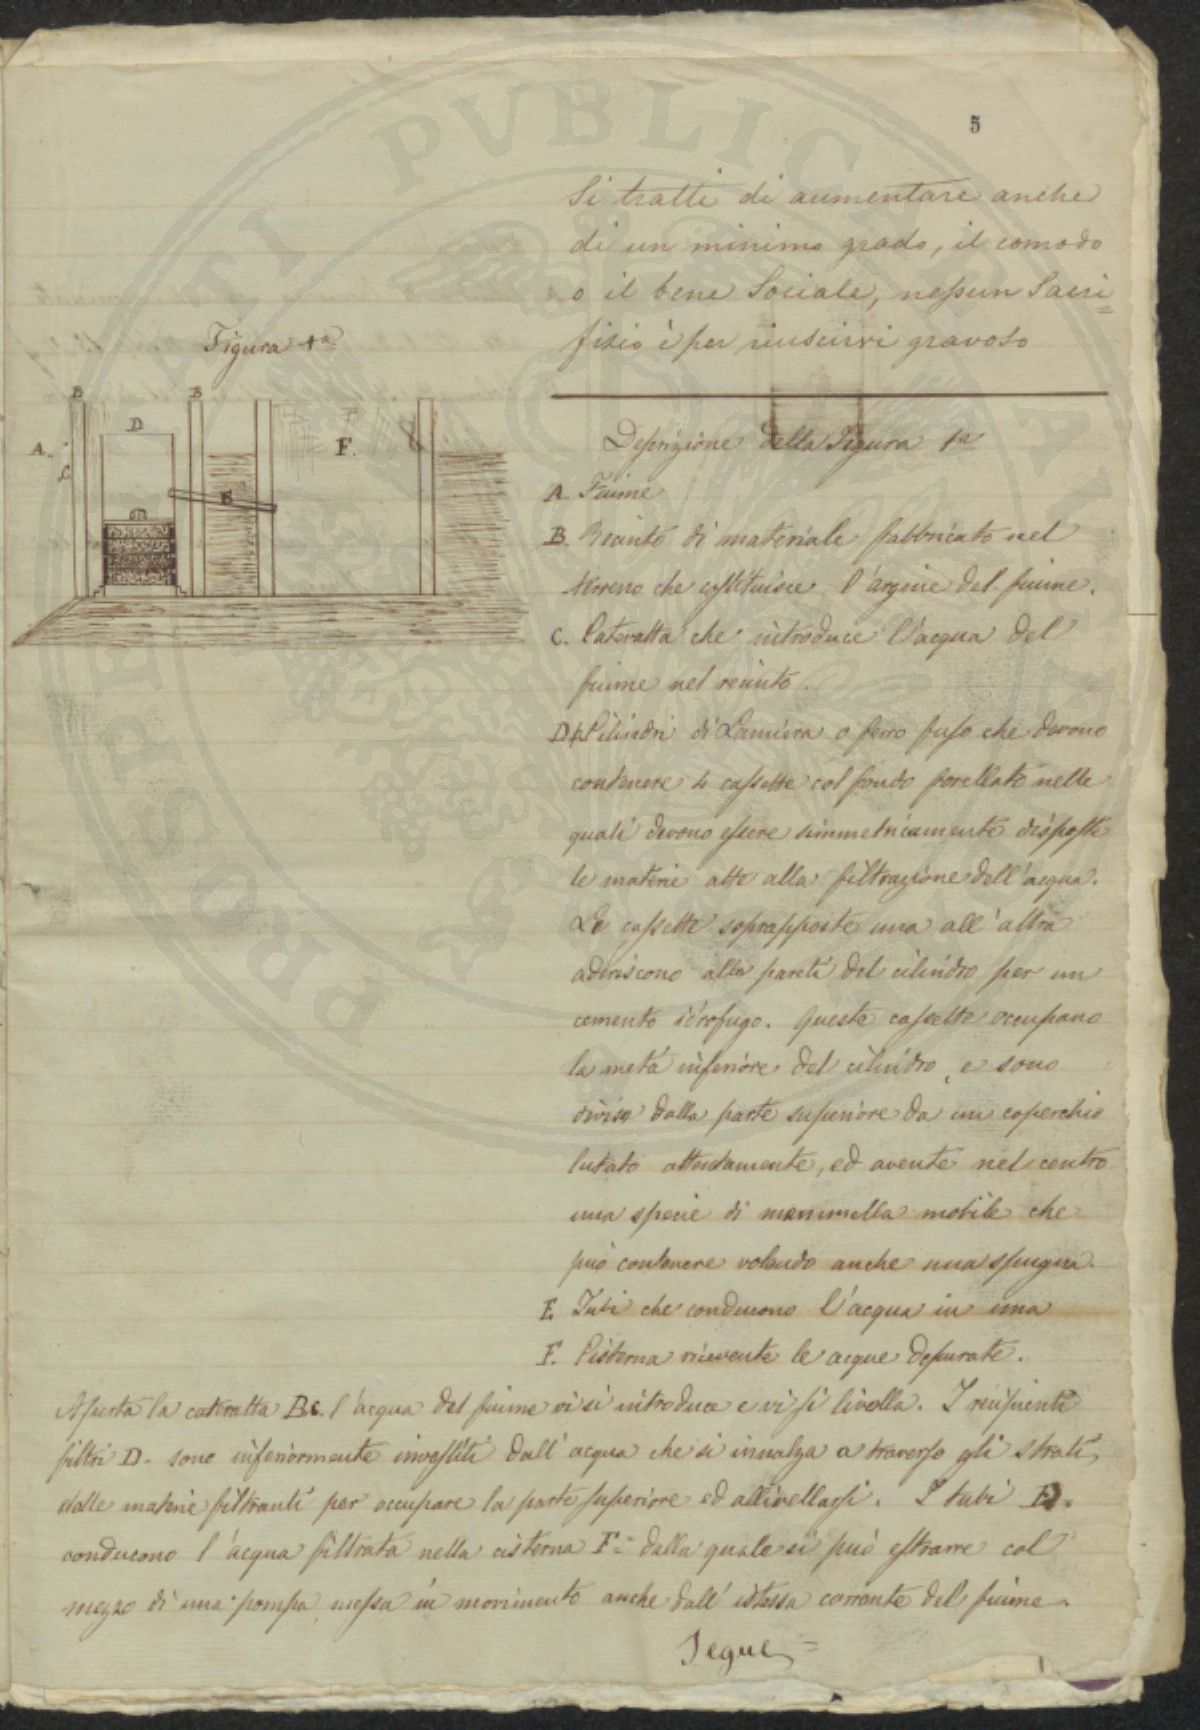 5
Si tratti di aumentare anche
di un minimo grado, il comodo
o il bene Sociale, nessun Sacri=
fizio è per riuscirvi gravoso
Figura 1a
B B
D
A C
E F.
Descrizione della Figura 1a
A Fiume
B. Recinto di materiale fabbricato nel
terreno che costituisce l'argine del fiume.
C. Cateratta che introduce l'acqua del
fiume nel recinto.
D Cilindri di Lamiera o ferro fuso che devono
contenere 4 cassette col fondo forellato nelle
quali devono essere simmetricamente disposte
le materie atte alla filtrazione dell'acqua.
Le cassette soprapposte una all'altra
aderiscono alle pareti del cilindro per un
cemento idrofugo. Queste cassette occupano
la metà inferiore del cilindro, e sono
divise dalla parte superiore da un coperchio
lutato attentamente, ed avente nel centro
una specie di mammella mobile che
può contenere volendo anche una spugna.
E. Tubi che conducono l'acqua in una
F. Cisterna ricevente le acque depurate.
Aperta la cateratta B.C. l'acqua del fiume vi si introduce e vi si livella. I recipienti
filtri D. sono inferiormente investiti dall'acqua che si innalza a traverso gli strati
dalle materie filtranti per occupare la parte superiore ed allivellarsi. I tubi E.
conducono l'acqua filtrata nella cisterna F= dalla quale si può estrarre col
mezzo di una pompa messa in movimento anche dall'istessa corrente del fiume.
Segue=
PROSPERITATI PVBLICAE AVGENDAE